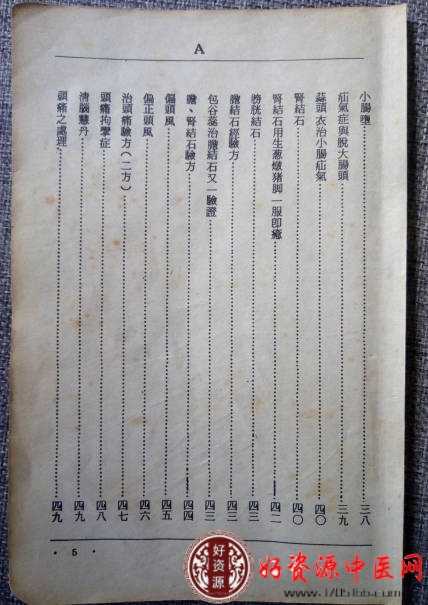 A
小腸墮 三八
疝氣症與脫大腸頭 三九
蒜頭衣治小腸疝氣 四〇
腎結石 四〇
腎結石用生葱燉猪脚一服卽癒 四二
膀胱結石 四三
膽結石經驗方 四三
包谷蕊治膽結石又一驗證 四三
膽、腎結石驗方 四四
偏頭風 四五
偏正頭風 四六
治頭痛驗方(二方) 四七
頭痛拘攣症 四八
清腦慧丹 四九
頭痛之處理 四九
• 5 •
好资源
好资源中医网